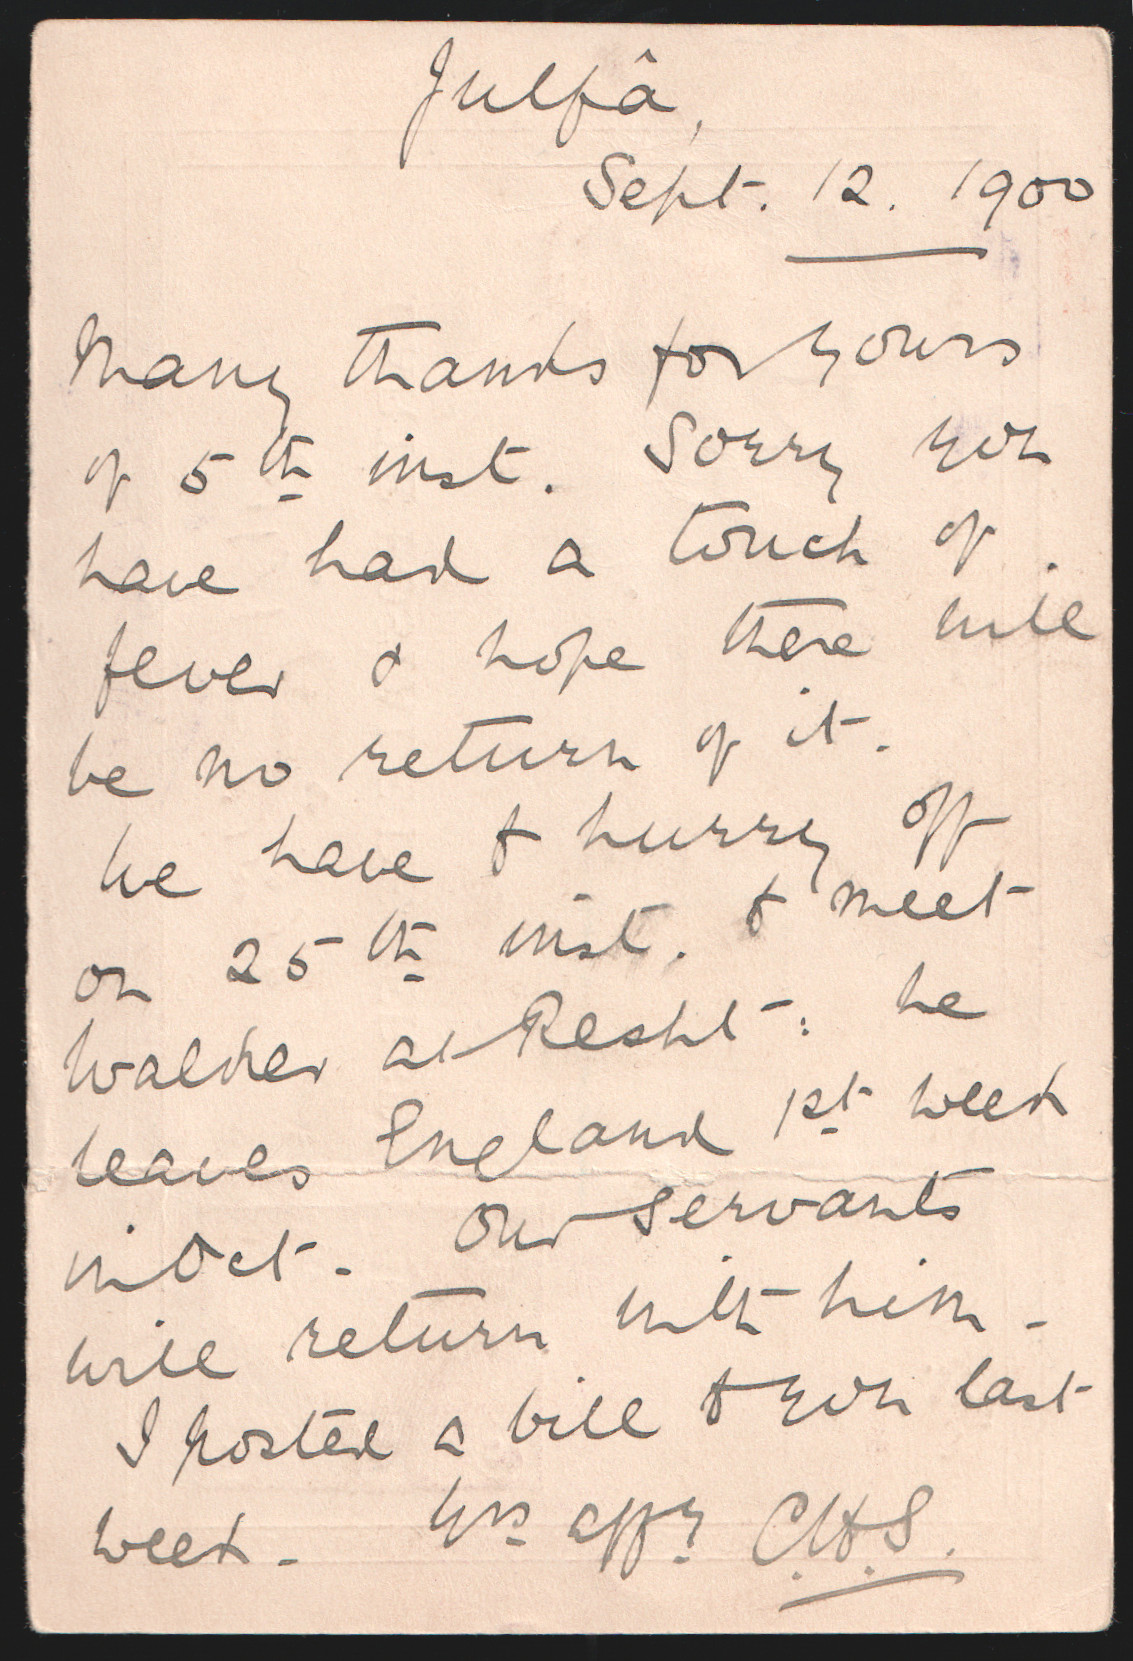 Julfâ,
Sept. 12. 1900
Many thanks for yours
of 5th inst. Sorry you
have had a touch of
fever & hope there will
be no return of it.
We have to hurry off
on 25th inst. to meet
Walker at Resht: he
leaves England 1st week
in Oct. Our servants
will return with him.
I posted a bill to you last
week. Yrs affy C.H.S.